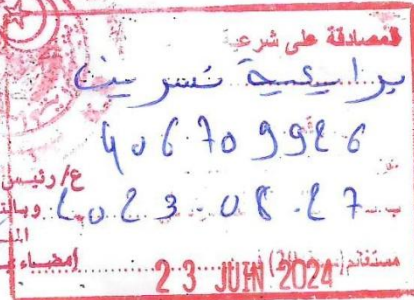 للمصادقة على شرعية
براهيمية نسرين
406709926
ع/رئيس
ب 2023.08.27 وبالت
إمضاء
مستغانم 23 JUIN 2024